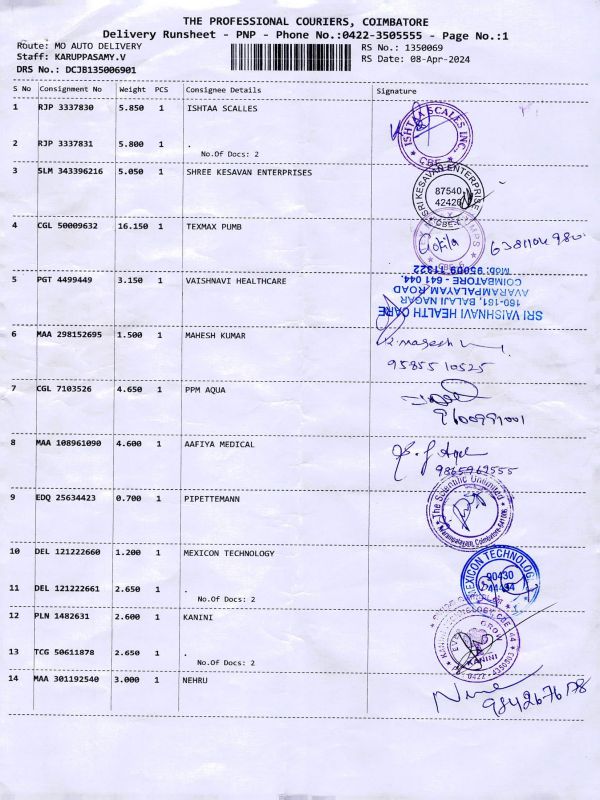 THE PROFESSIONAL COURIERS, COIMBATORE
Delivery Runsheet - PNP - Phone No.:0422-3505555 - Page No.:1
Route: MO AUTO DELIVERY
RS No.: 1350069
Staff: KARUPPASAMY.V
RS Date: 08-Apr-2024
DRS No.: DCJB135006901
S No Consignment No Weight PCS Consignee Details Signature
1 RJP 3337830 5.850 1 ISHTAA SCALLES
ISHTAA SCALES INC. CBE
2 RJP 3337831 5.800 1 .
No.Of Docs: 2
3 SLM 343396216 5.050 1 SHREE KESAVAN ENTERPRISES
SRI KESAVAN ENTERPRISE
87540
42426
CBE-6
4 CGL 50009632 16.150 1 TEXMAX PUMB
Gokila
5 PGT 4499449 3.150 1 VAISHNAVI HEALTHCARE
SRI VAISHNAVI HEALTH CARE
160-161, BALAJI NAGAR
AVARAMPALAYAM ROAD
COIMBATORE - 641 044.
MOB: 95009 11322
6 MAA 298152695 1.500 1 MAHESH KUMAR
9585510525
7 CGL 7103526 4.650 1 PPM AQUA
9600991001
8 MAA 108961090 4.600 1 AAFIYA MEDICAL
9865962555
9 EDQ 25634423 0.700 1 PIPETTEMANN
The Scientific Unlimited
Avarampalayam, Coimbatore-641006
10 DEL 121222660 1.200 1 MEXICON TECHNOLOGY
MEXICON TECHNOLOGY
90430
44434
11 DEL 121222661 2.650 1 .
No.Of Docs: 2
12 PLN 1482631 2.600 1 KANINI
KANINI
13 TCG 50611878 2.650 1 .
No.Of Docs: 2
14 MAA 301192540 3.000 1 NEHRU
9842676178